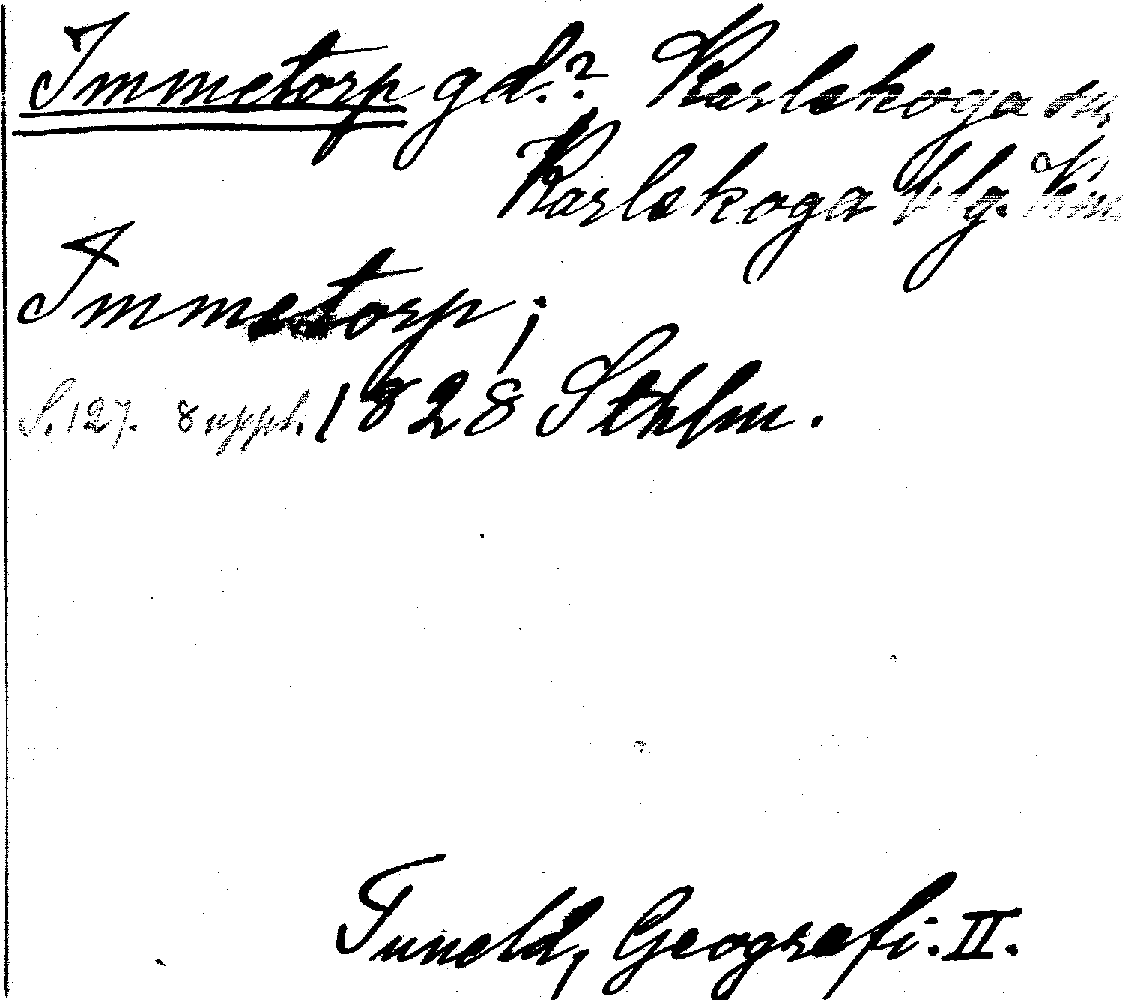 Immetorp gd.? Karlskoga sn,
Karlskoga blg.
Immetorp;
S. 127. 8 uppl. 1828 Sthlm.
Tuneld, Geografi. II.